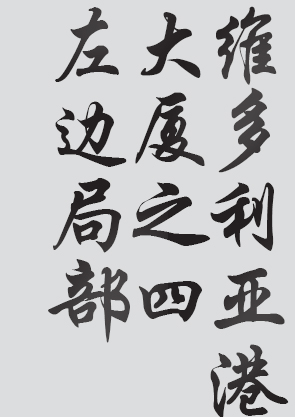 维多利亚港
大厦之四
左边局部